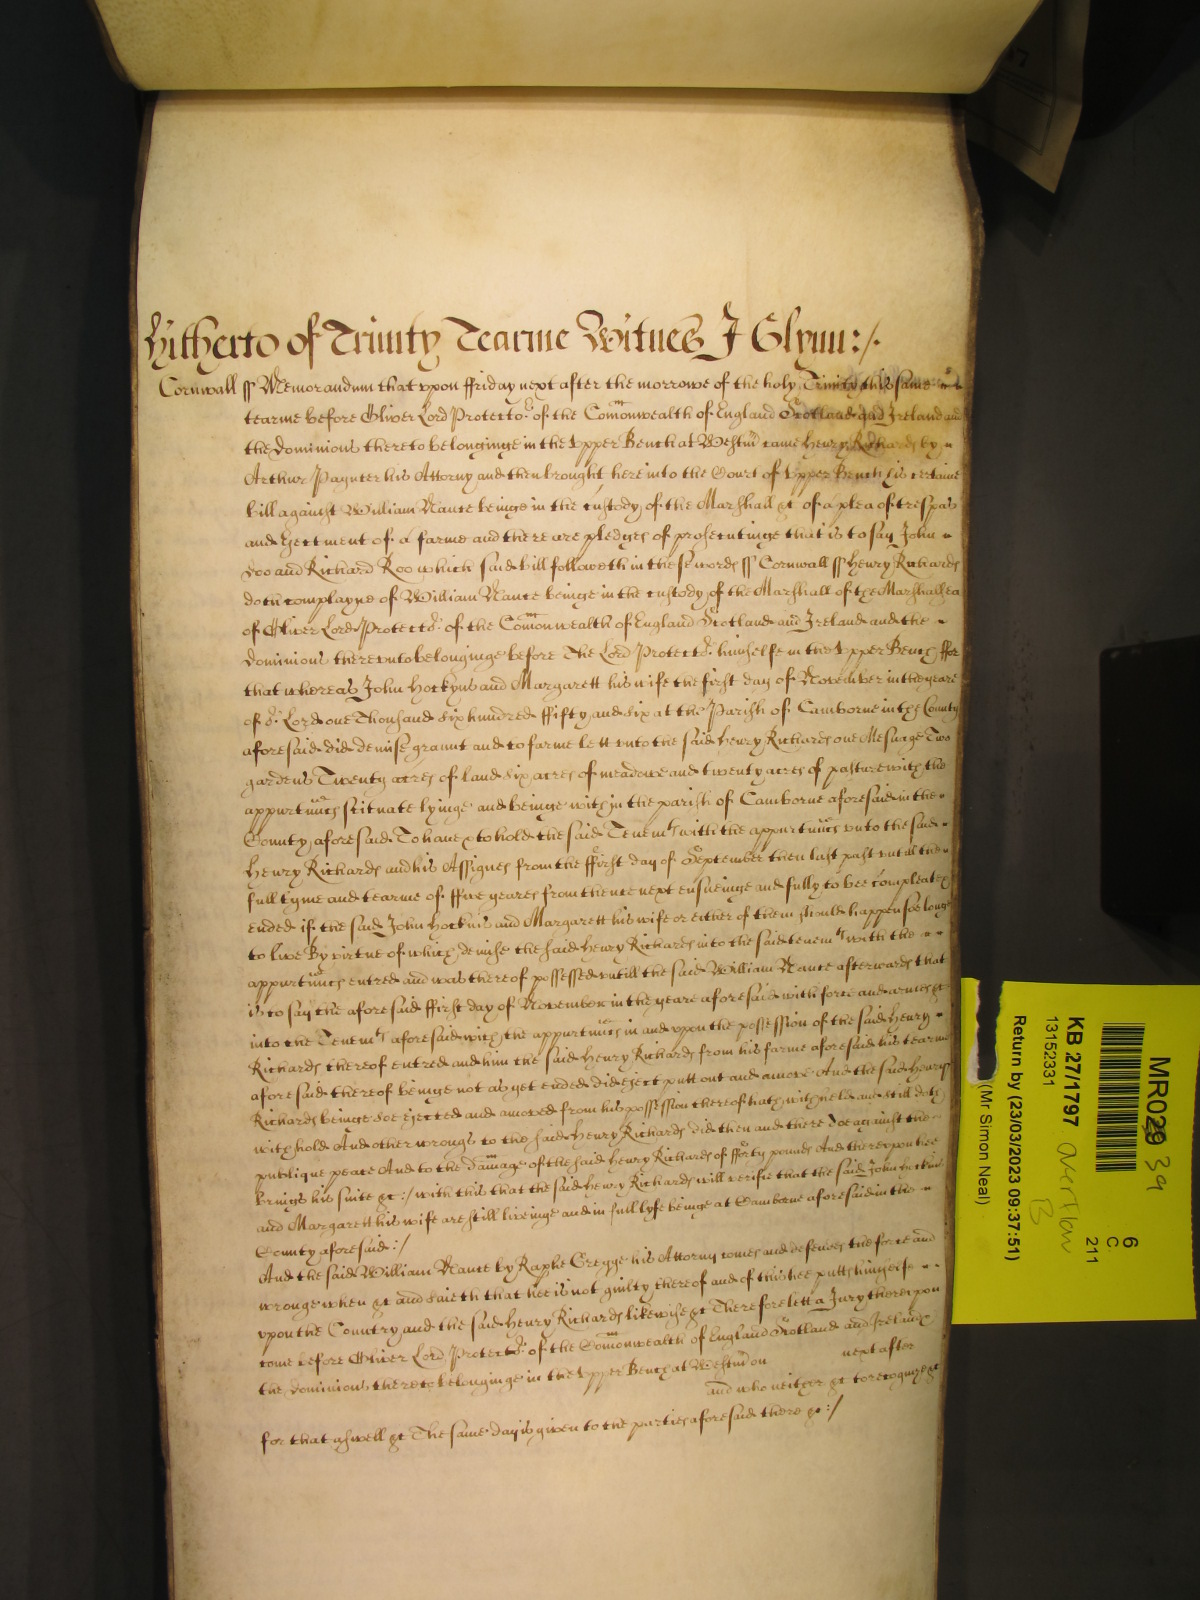 hitherto of Trinity Tearme Witnes J Glynn:/.
Cornwall ss Memorandum that vpon ffriday next after the morrowe of the holy Trinity this same
tearme before Oliver Lord Protector of the Comonwealth of England Scotland and Ireland and
the dominions thereto belonginge in the Vpper Bench at Westm came Henry Richards by
Arthur Paynter his Attorny and then brought here into the Court of Vpper Bench his certaine
bill against William Nance beinge in the custody of the Marshall &c of a plea of trespas
and Eiectment of a farme and there are pledges of prosecutinge that is to say John
Doo and Richard Roo which said bill followeth in these words ss Cornwall ss Henry Richards
doth complayne of William Nance beinge in the custody of the Marshall of the Marshalsea
of Oliver Lord Protector of the Comonwealth of England Scotland and Ireland and the
dominions therevnto belonginge before The Lord Protector himselfe in the Vpper Bench ffor
that whereas John Hockyns and Margarett his wife the first day of November in the yeare
of or Lord one Thousand six hundred ffifty and six at the Parish of Camborne in the County
aforesaid did demise graunt and to farme lett vnto the said Henry Richards one Mesuage Two
gardens Twenty acres of land six acres of meadowe and twenty acres of pasture with the
appurtnncs scituate lyinge and beinge within the parish of Camborne aforesaid in the
County aforesaid To have & to hold the said Tenemts with the appurtnncs vnto the said
Henry Richards and his Assignes from the ffirst day of September then last past vntill the
full tyme and tearme of ffive yeares from thence next ensueinge and fully to bee compleate &
ended if the said John Hockins and Margarett his wife or either of them should happen soe longe
to live By virtue of which demise the said Henry Richards into the said tenemts with the
appurtnncs entred and was thereof possessed vntill the said William Nance afterwards that
is to say the aforesaid ffirst day of November in the yeare aforesaid with force and armes &c
into the Tenemts aforesaid with the appurtnncs in and vpon the possession of the said Henry
Richards thereof entred and him the said Henry Richards from his farme aforesaid his tearme
aforesaid thereof beinge not as yet ended did eject putt out and amove And the said Henry
Richards beinge soe ejected and amoved from his possession thereof hath withheld and still doth
withhold And other wrongs to the said Henry Richards did then and there doe against the
publique peace And to the damage of the said Henry Richards of fforty pounds And therevpon hee
brings his suite &c :/ with this that the said Henry Richards will verifie that the said John Hockins
and Margarett his wife are still liveinge and in full lyfe beinge at Camborne aforesaid in the
County aforesaid :/
And the said William Nance by Raphe Gregge his Attorny comes and defends the force and
wronge when &c and saieth that hee is not guilty thereof and of this hee putts himselfe
vpon the Country and the said Henry Richards likewise &c Therefore lett a Jury therevpon
come before Oliver Lord Protector of the Comonwealth of England Scotland and Ireland
the dominions thereto belonginge in the Vpper Bench at Westm on next after
and who neither &c to recognize &c
for that aswell &c The same day is given to the parties aforesaid there &c :/
MR029 39
6
C.
211
KB 27/1797 overflow B
13152331
(Mr Simon Neal)
Return by (23/03/2023 09:37:51)